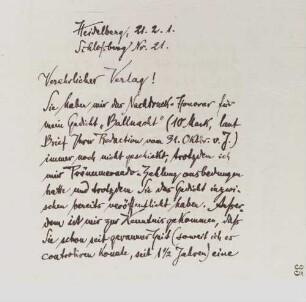 Heidelberg, 21. 2. 1.
Schloßberg Nr. 21.
Verehrlicher Verlag!
Sie haben mir das Nachdrucks-Honorar für
mein Gedicht „Ballnacht" (10 Mark, laut
Brief Ihrer Redaction vom 31. Oktbr. v. J.)
immer noch nicht geschickt, trotzdem ich
mir Pränumerando-Zahlung ausbedungen
hatte und trotzdem Sie das Gedicht inzwi-
schen bereits veröffentlicht haben. Außer-
dem ist mir zur Kenntnis gekommen, daß
Sie schon seit geraumer Zeit (soweit ich es
controliren konnte, seit 1½ Jahren) eine
35